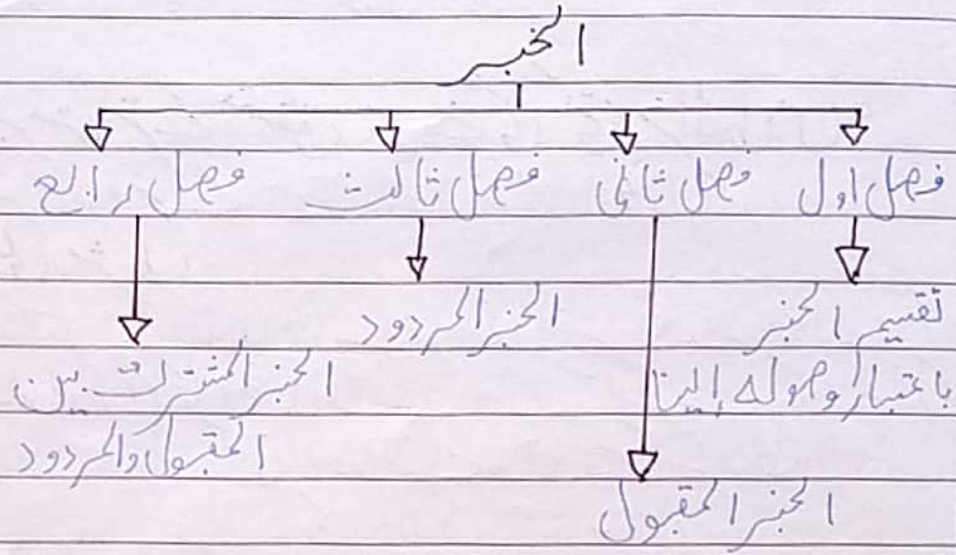 الخبر
فصل اول
فصل ثانی
فصل ثالث
فصل رابع
تقسیم الخبر
باعتبار وصوله إلینا
الخبر المقبول
الخبر المردود
الخبر المشترك بین
المقبول والمردود